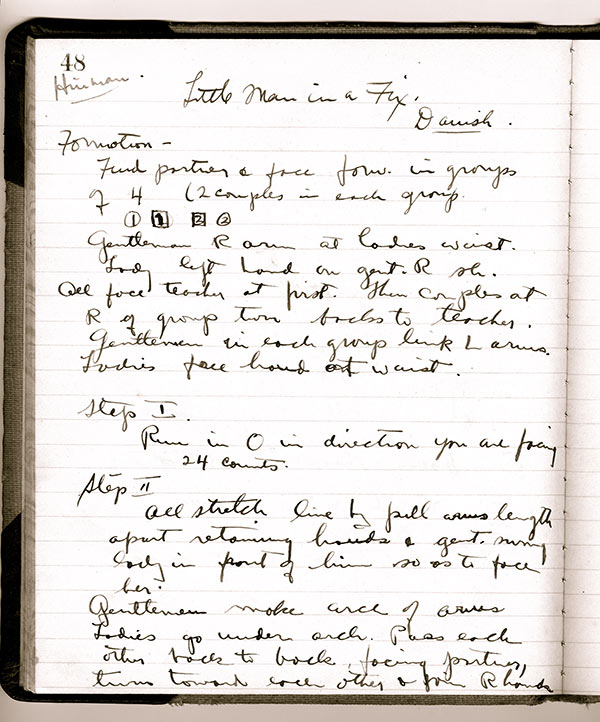 48
Hinman.
Little Man in a Fix.
Danish.
Formation -
Find partner & face forw. in groups
of 4 (2 couples in each group.
1 1 2 2
Gentleman R arm at ladies waist.
Lady left hand on gent. R sh.
All face teacher at first. Then couples at
R of group turn backs to teacher.
Gentlemen in each group link L arms.
Ladies free hand at waist.
Step I.
Run in O in direction you are facing
24 counts.
Step II
All stretch line by full arms length
apart retaining hands & gent. swing
lady in front of him so as to face
her.
Gentlemen make arch of arms
Ladies go under arch. Pass each
other back to back, facing partner,
turn toward each other & join R hands